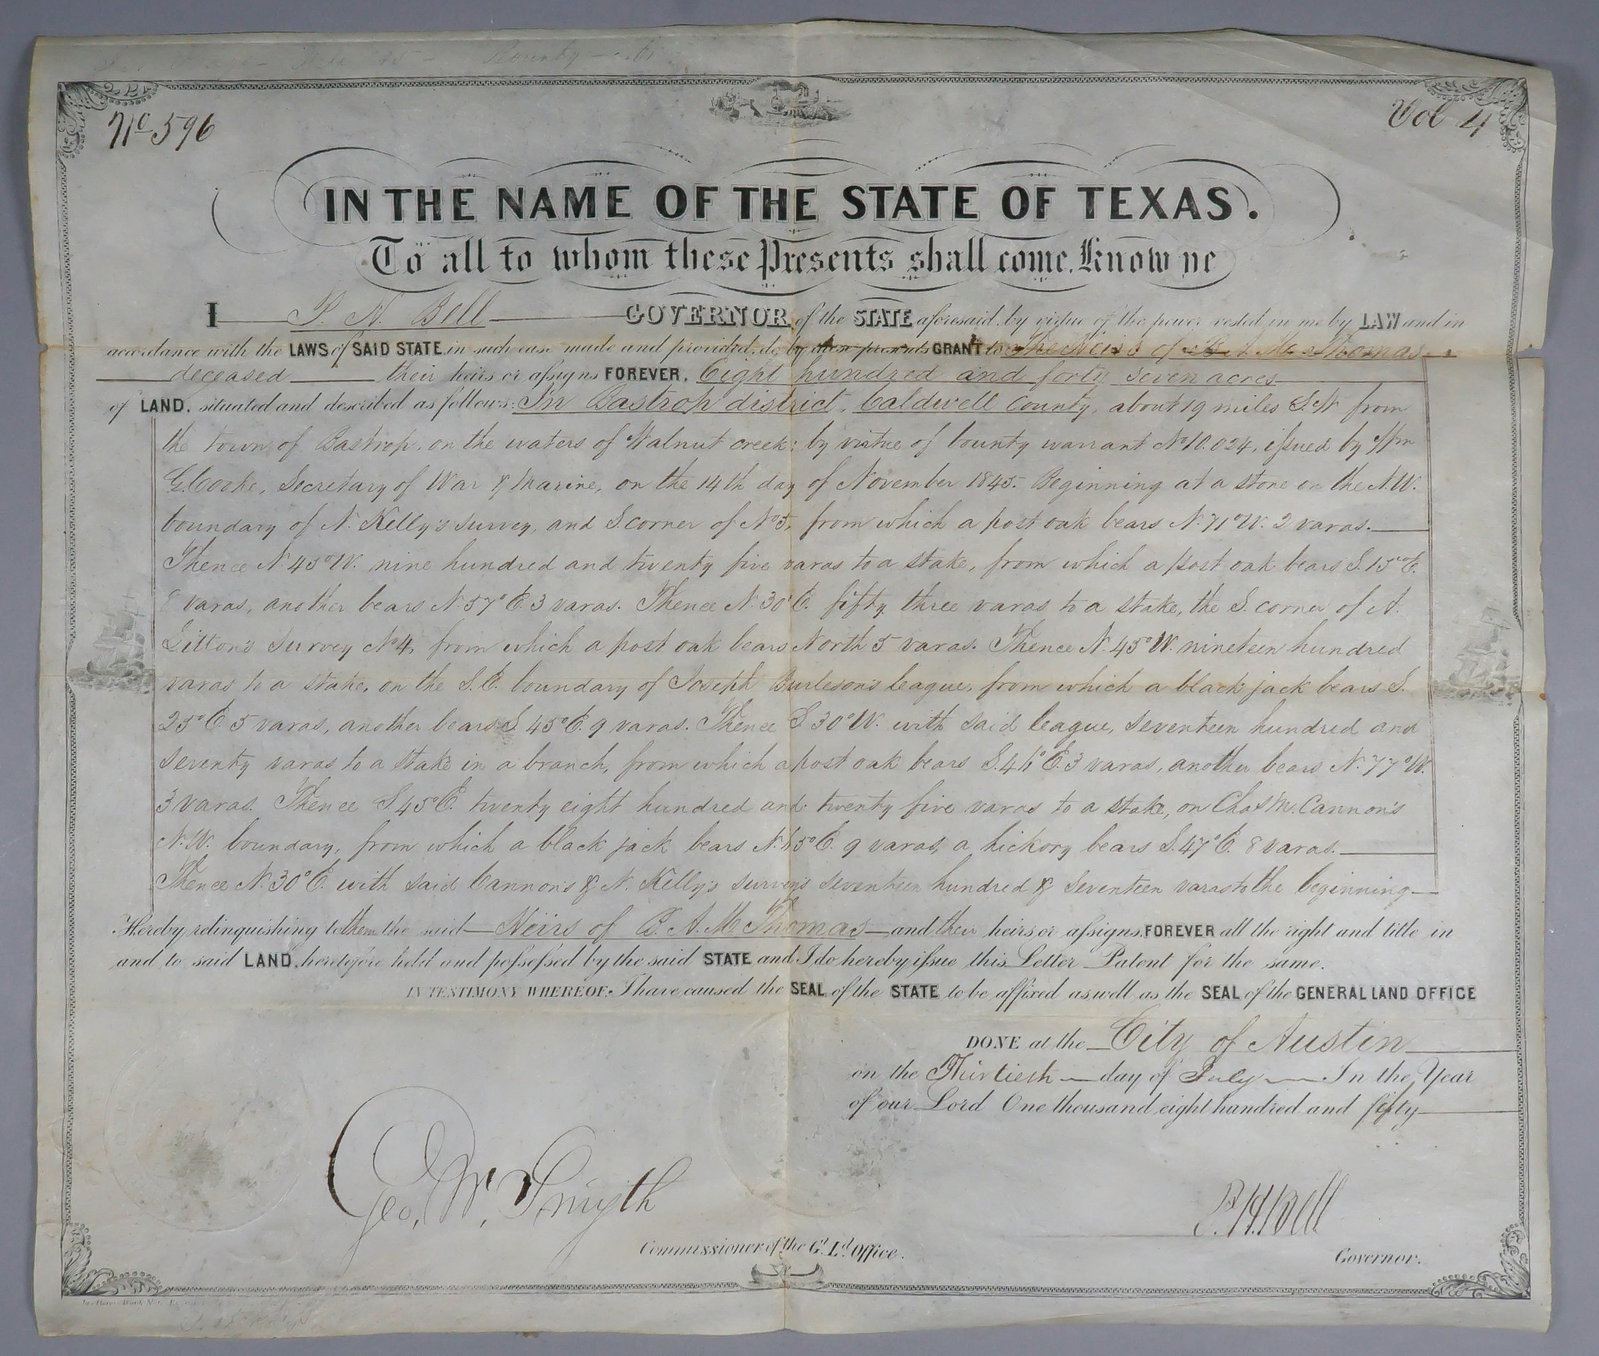 No 596
Vol 4
IN THE NAME OF THE STATE OF TEXAS.
To all to whom these Presents shall come, Know ye
I P. H. Bell GOVERNOR of the STATE aforesaid by virtue of the power vested in me by LAW and in
accordance with the LAWS of SAID STATE in such case made and provided, do by these presents GRANT to The Heirs of B. A. McThomas
deceased their heirs or assigns FOREVER, Eight hundred and forty seven acres
of LAND, situated and described as follows: In Bastrop district, Caldwell County, about 19 miles S.W from
the town of Bastrop, on the waters of Walnut creek; by virtue of bounty warrant No issued by Wm
G. Cooke, Secretary of War & Marine, on the 14th day of November 1845. Beginning at a stone on the N.W.
boundary of N. Kelly's survey, and S. corner of No 5, from which a post oak bears N. 71° W. 2 varas.
Thence N. 45° W. nine hundred and twenty five varas to a stake, from which a post oak bears S. 15° E.
8 varas, another bears N. 57° E. 3 varas. Thence N. 30° E. fifty three varas to a stake, the S. corner of A.
Litton's survey No 4, from which a post oak bears North 5 varas. Thence N. 45° W. nineteen hundred
varas to a stake, on the S.E. boundary of Joseph Burleson's league, from which a black jack bears S.
25° E. 5 varas, another bears S. 45° E. 9 varas. Thence S 30° W. with said league, seventeen hundred and
seventy varas to a stake in a branch, from which a post oak bears S. 41° E. 3 varas, another bears N. 77° W.
3 varas. Thence S. 45° E. twenty eight hundred and twenty five varas to a stake, on Chas McCannon's
N.W. boundary, from which a black jack bears E. 9 varas, a hickory bears S. 47° E. 8 varas.
Thence N. 30° E. with said Cannon's & N. Kelly's surveys seventeen hundred & seventeen varas to the beginning
Hereby relinquishing to them the said Heirs of B. A. McThomas and their heirs or assigns FOREVER all the right and title in
and to said LAND, heretofore held and possessed by the said STATE and I do hereby issue this Letter Patent for the same.
IN TESTIMONY WHEREOF, I have caused the SEAL of the STATE to be affixed as well as the SEAL of the GENERAL LAND OFFICE
DONE at the City of Austin
on the Thirtieth day of July In the Year
of our Lord One thousand eight hundred and fifty
Geo. W. Smyth
Commissioner of the Gl. Ld. Office.
P. H. Bell
Governor.